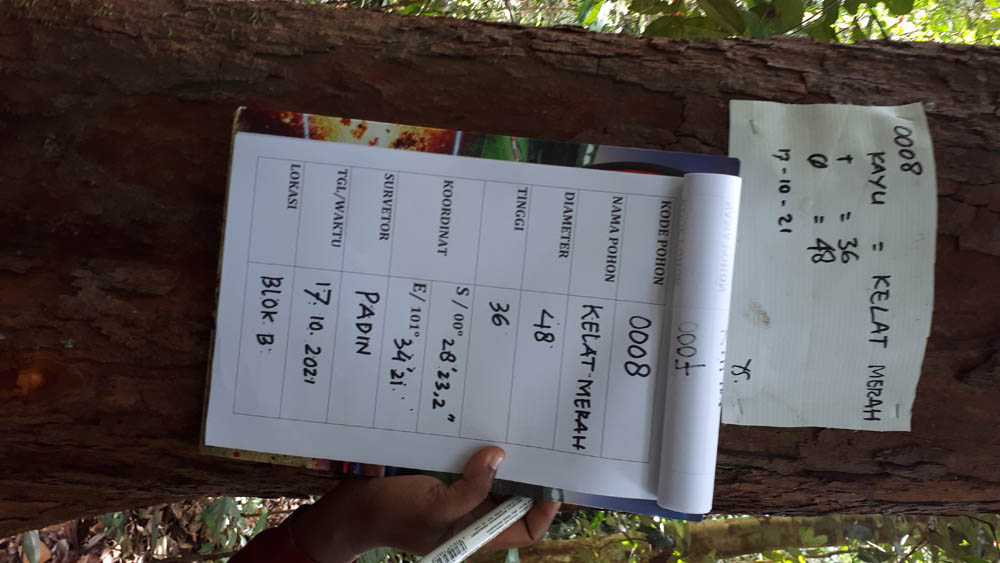 0008
KAYU = KELAT MERAH
T = 36
Ø = 48
17-10-21
YS.
KODE POHON 0008
NAMA POHON KELAT MERAH
DIAMETER 48
TINGGI 36
KOORDINAT S / 00° 28'23,2"
E/ 101° 34'21.
SURVETOR PADIN
TGL/WAKTU 17. 10. 2021
LOKASI BLOK B